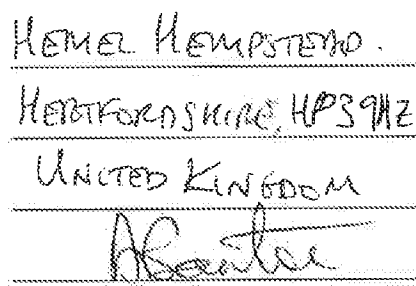 HEMEL HEMPSTEAD.
HERTFORDSHIRE, HP3 9HZ
UNITED KINGDOM